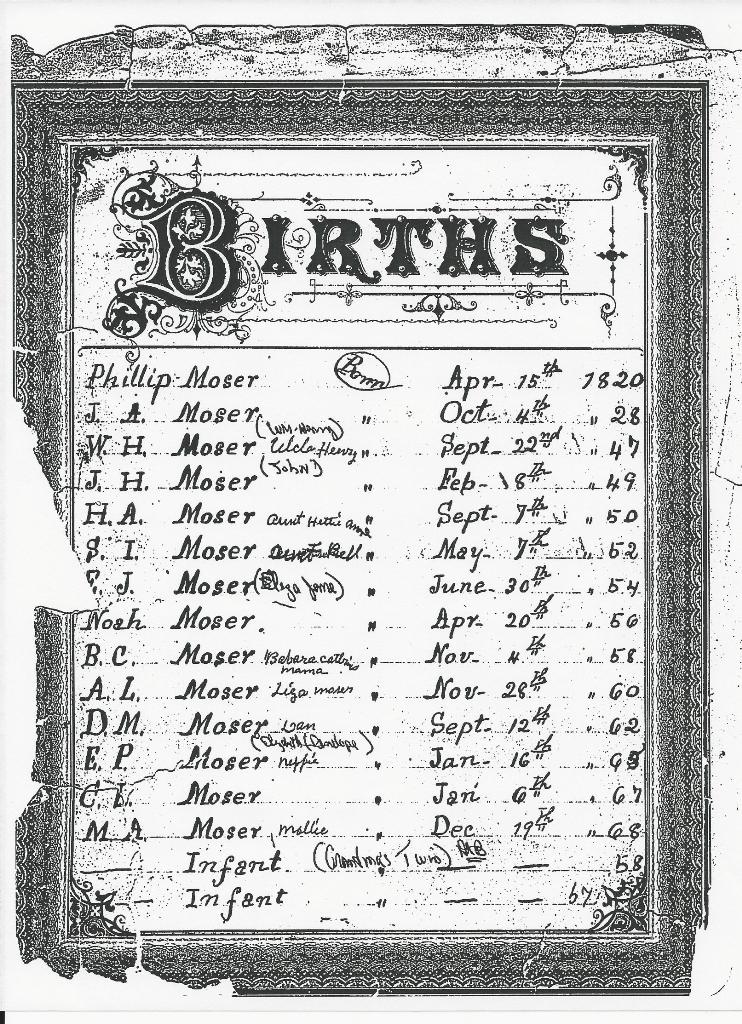 BIRTHS
Phillip Moser Born Apr- 15th 1820
J. A. Moser " Oct- 4th " 28
(Wm-Henry)
W. H. Moser Uncle Henry " Sept- 22nd " 47
(John)
J. H. Moser " Feb- 8th " 49
H. A. Moser Aunt Hetti Ann " Sept- 7th " 50
S. I. Moser " May- 7th " 52
J. Moser (Eliza Jane) " June- 30th " 54
Noah Moser. " Apr- 20th " 56
B. C. Moser Babara Cathrin " Nov- 4th " 58
mama
A. L. Moser Liza moser " Nov- 28th " 60
D. M. Moser Dan " Sept- 12th " 62
(Elizabeth Penelope)
E. P. Moser neppie " Jan- 16th " 65
C. L. Moser " Jan 6th " 67
M. A. Moser, mollie " Dec 19th " 68
— Infant. (Grandma's Twin) " — — 58
— Infant " — — 67